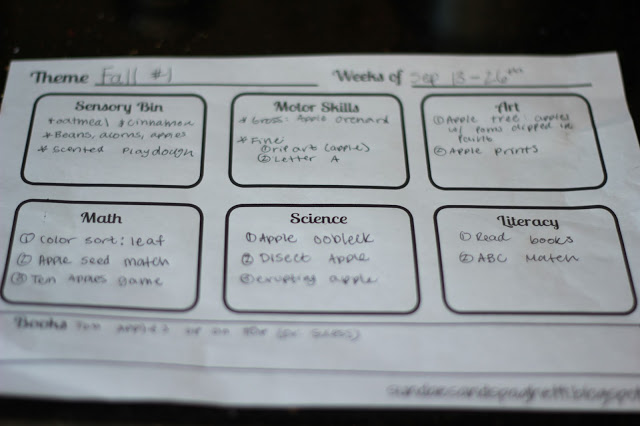 Theme Fall #1 Weeks of Sep 13-26th
Sensory Bin
* oatmeal & cinnamon
* Beans, acorns, apples
* Scented Playdough
Motor Skills
* Gross: Apple Orchard
* Fine:
① rip art (apples)
② Letter A
Art
① Apple tree: apples
w/ poms dipped in
paint
② Apple prints
Math
① Color sort: leaf
② Apple seed match
③ Ten Apples Game
Science
① Apple oobleck
② Disect Apple
③ erupting apple
Literacy
① Read books
② ABC Match
Books Ten Apples up on Top (Dr Seuss)